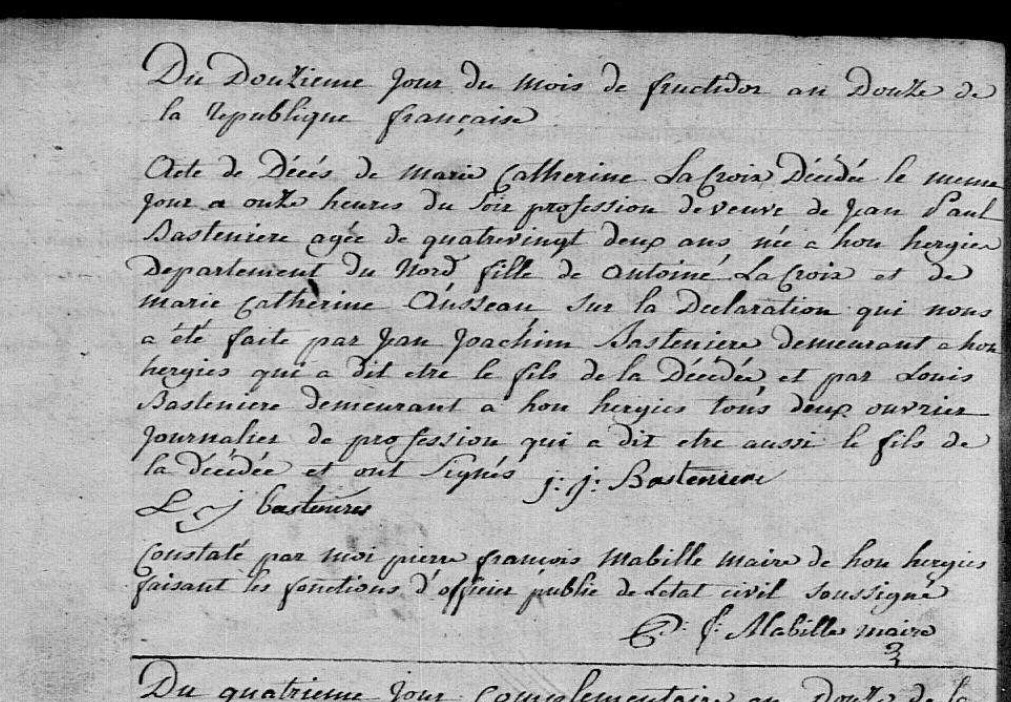 Du Douzieme jour du mois de fructidor an Douze de
la republique française
Acte de Décés de marie Catherine LaCroix Décédée le meme
jour a onze heures du soir profession de veuve de Jean Paul
Basteniere agée de quatrevingt deux ans née a hon hergies
Departement du Nord fille de Antoine LaCroix et de
marie Catherine Ausseau sur la Declaration qui nous
a été faite par Jean Joachim Basteniere demeurant a hon
hergies qui a dit etre le fils de la Décédée et par Louis
Basteniere demeurant a hon hergies tous deux ouvrier
journalier de profession qui a dit etre aussi le fils de
la décédée et ont signés j: j: Basteniere
L j bastenieres
Constaté par moi pierre françois Mabille maire de hon hergies
faisant les fonctions d'officier public de letat civil soussigné
P: f: Mabille maire
Du quatrieme jour Complementaire an Douze de la